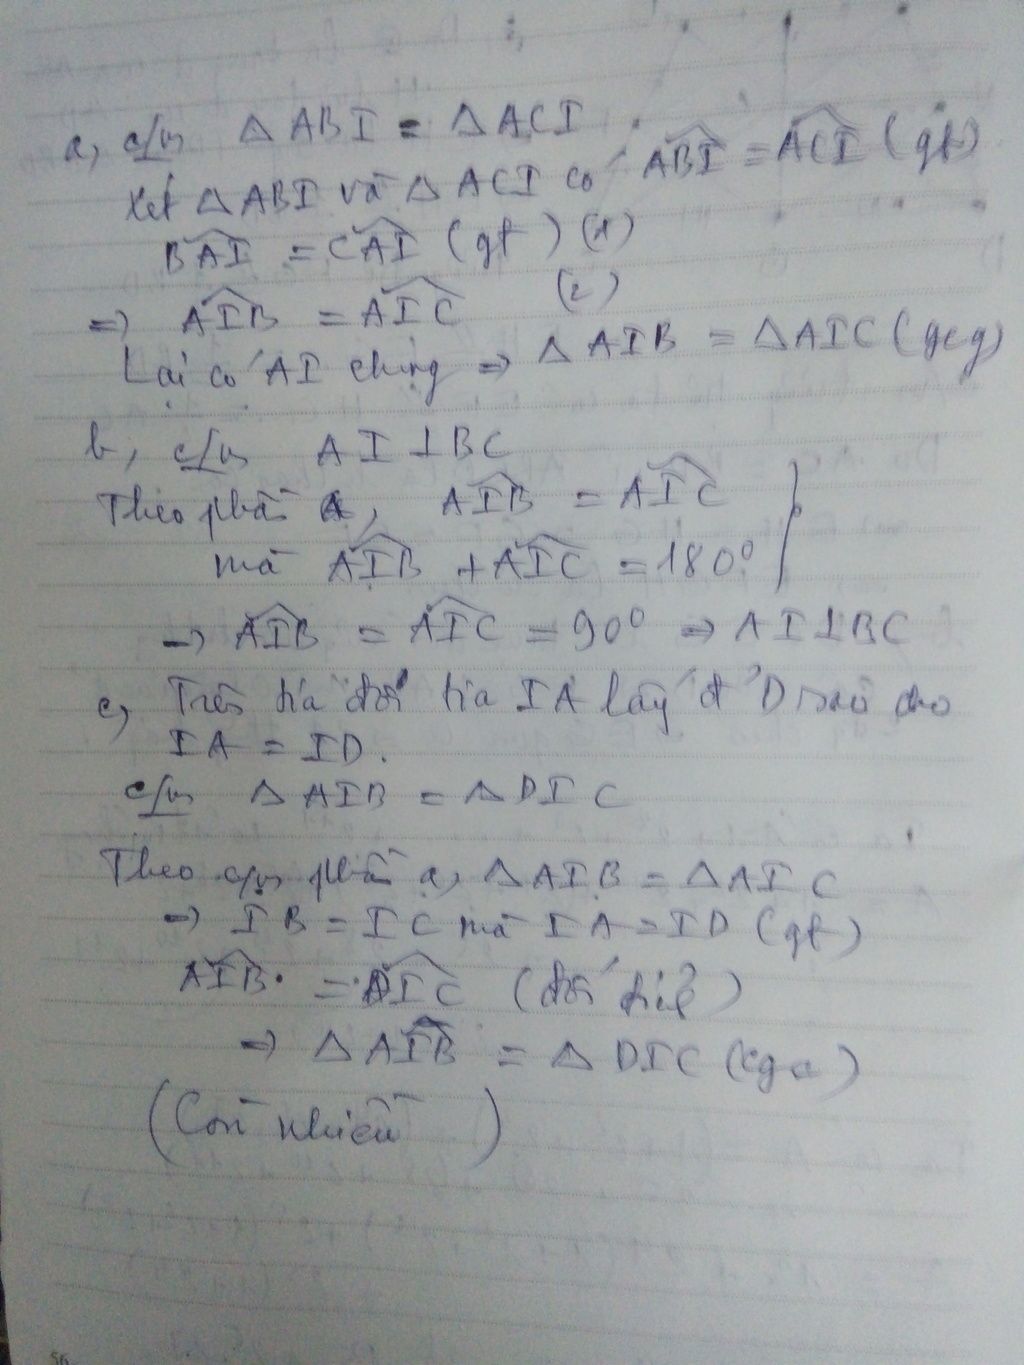 a, c/m △ ABI = △ ACI
Xét △ ABI và △ ACI có ABI = ACI (gt)
BAI = CAI (gt) (1)
=> AIB = AIC (2)
Lại có AI chung => △ AIB = △ AIC (gcg)
b, c/m AI ⊥ BC
Theo phần a, AIB = AIC
mà AIB + AIC = 180°
=> AIB = AIC = 90° => AI ⊥ BC
c, Trên tia đối tia IA lấy đ' D sao cho
IA = ID.
c/m △ AIB = △ DIC
Theo c/m phần a, △ AIB = △ AIC
=> IB = IC mà IA = ID (gt)
AIB = DIC (đối đỉnh)
=> △ AIB = △ DIC (cgc)
(Còn nhiều)
56